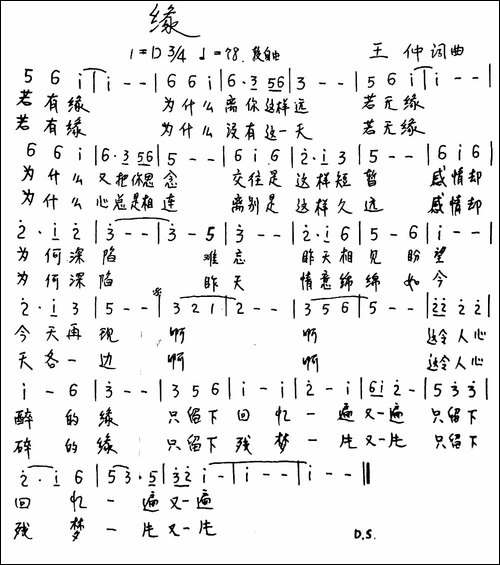 缘
1=D 3/4 ♩=78. 较自由 王 仲 词曲
5 6 i | i - - | 6 6 i | 6·3 56 | 3 - - | 5 6 i | i - - |
若 有 缘 为 什 么 离 你 这样 远 若 无 缘
若 有 缘 为 什 么 没 有 这一 天 若 无 缘
6 6 i | 6·3 56 | 5 - - | 6 i 6 | 2·i 3 | 5 - - | 6 i 6 |
为 什 么 又 把你思 念 交 往 是 这 样 短 暂 感 情 却
为 什 么 心 总是相 连 离 别 是 这 样 久 远 感 情 却
2·i 2 | 3 - - | 3 - 5 | 3 - - | 2·i 6 | 5 - 6 | i - - |
为 何 深 陷 难 忘 昨 天 相 见 盼 望
为 何 深 陷 昨 天 情 意 绵 绵 如 今
2·i 3 | 5 - - | 3 2 1 | 2 - - | 3 5 6 | 5 - - | 22 2 2 |
今 天 再 现 啊 啊 这令 人 心
天 各 一 边 啊 啊 这令 人 心
i - 6 | 3 - - | 3 5 6 | i - i | 2 - i | 6i 2 - | 5 3 3 |
醉 的 缘 只 留 下 回 忆 一 遍 又一 遍 只 留 下
碎 的 缘 只 留 下 残 梦 一 片 又一 片 只 留 下
2·i 6 | 5 3·5 | 32 i - | i - - | i - - ‖
回 忆 一 遍 又一 遍
残 梦 一 片 又一 片 D.S.